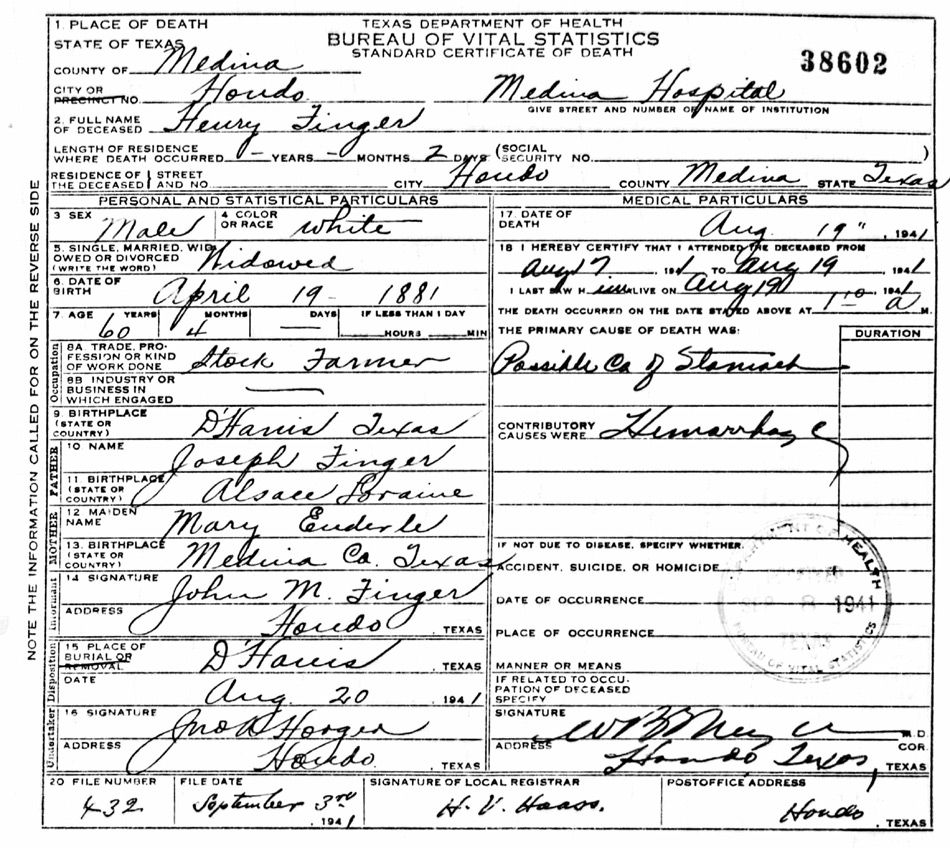 NOTE THE INFORMATION CALLED FOR ON THE REVERSE SIDE
1. PLACE OF DEATH
STATE OF TEXAS
COUNTY OF Medina
TEXAS DEPARTMENT OF HEALTH
BUREAU OF VITAL STATISTICS
STANDARD CERTIFICATE OF DEATH
38602
CITY OR PRECINCT NO. Hondo Medina Hospital
GIVE STREET AND NUMBER OR NAME OF INSTITUTION
2. FULL NAME OF DECEASED Henry Finger
LENGTH OF RESIDENCE WHERE DEATH OCCURRED - YEARS - MONTHS 2 DAYS (SOCIAL SECURITY NO. )
RESIDENCE OF THE DECEASED STREET AND NO. CITY Hondo COUNTY Medina STATE Texas
PERSONAL AND STATISTICAL PARTICULARS
3 SEX Male 4 COLOR OR RACE White
5. SINGLE, MARRIED, WIDOWED OR DIVORCED (WRITE THE WORD) Widowed
6. DATE OF BIRTH April 19 - 1881
7. AGE 60 YEARS 4 MONTHS — DAYS IF LESS THAN 1 DAY HOURS MIN
Occupation
8A. TRADE, PROFESSION OR KIND OF WORK DONE Stock Farmer
8B. INDUSTRY OR BUSINESS IN WHICH ENGAGED —
9. BIRTHPLACE (STATE OR COUNTRY) D'Hanis Texas
FATHER
10 NAME Joseph Finger
11. BIRTHPLACE (STATE OR COUNTRY) Alsace Loraine
MOTHER
12 MAIDEN NAME Mary Enderle
13. BIRTHPLACE (STATE OR COUNTRY) Medina Co. Texas
Informant
14 SIGNATURE John M. Finger
ADDRESS Hondo, TEXAS
Disposition
15 PLACE OF BURIAL OR REMOVAL D'Hanis, TEXAS
DATE Aug. 20 1941
Undertaker
16 SIGNATURE Jno A Horger
ADDRESS Hondo, TEXAS
MEDICAL PARTICULARS
17. DATE OF DEATH Aug. 19", 1941
18 I HEREBY CERTIFY THAT I ATTENDED THE DECEASED FROM
Aug 17, 1941 TO Aug 19, 1941
I LAST SAW H im ALIVE ON Aug 19, 1941
THE DEATH OCCURRED ON THE DATE STATED ABOVE AT 1 10 a M.
THE PRIMARY CAUSE OF DEATH WAS: DURATION
Possible Ca of Stomach
CONTRIBUTORY CAUSES WERE Hemorrhage
IF NOT DUE TO DISEASE, SPECIFY WHETHER.
ACCIDENT, SUICIDE, OR HOMICIDE
DATE OF OCCURRENCE
PLACE OF OCCURRENCE
MANNER OR MEANS
IF RELATED TO OCCUPATION OF DECEASED SPECIFY
HEALTH
SEP 8 1941
TEXAS
BUREAU OF VITAL STATISTICS
SIGNATURE M.D.
ADDRESS Hondo Texas, COR. TEXAS
20 FILE NUMBER 432
FILE DATE September 3rd, 1941
SIGNATURE OF LOCAL REGISTRAR H. V. Haass.
POSTOFFICE ADDRESS Hondo, TEXAS